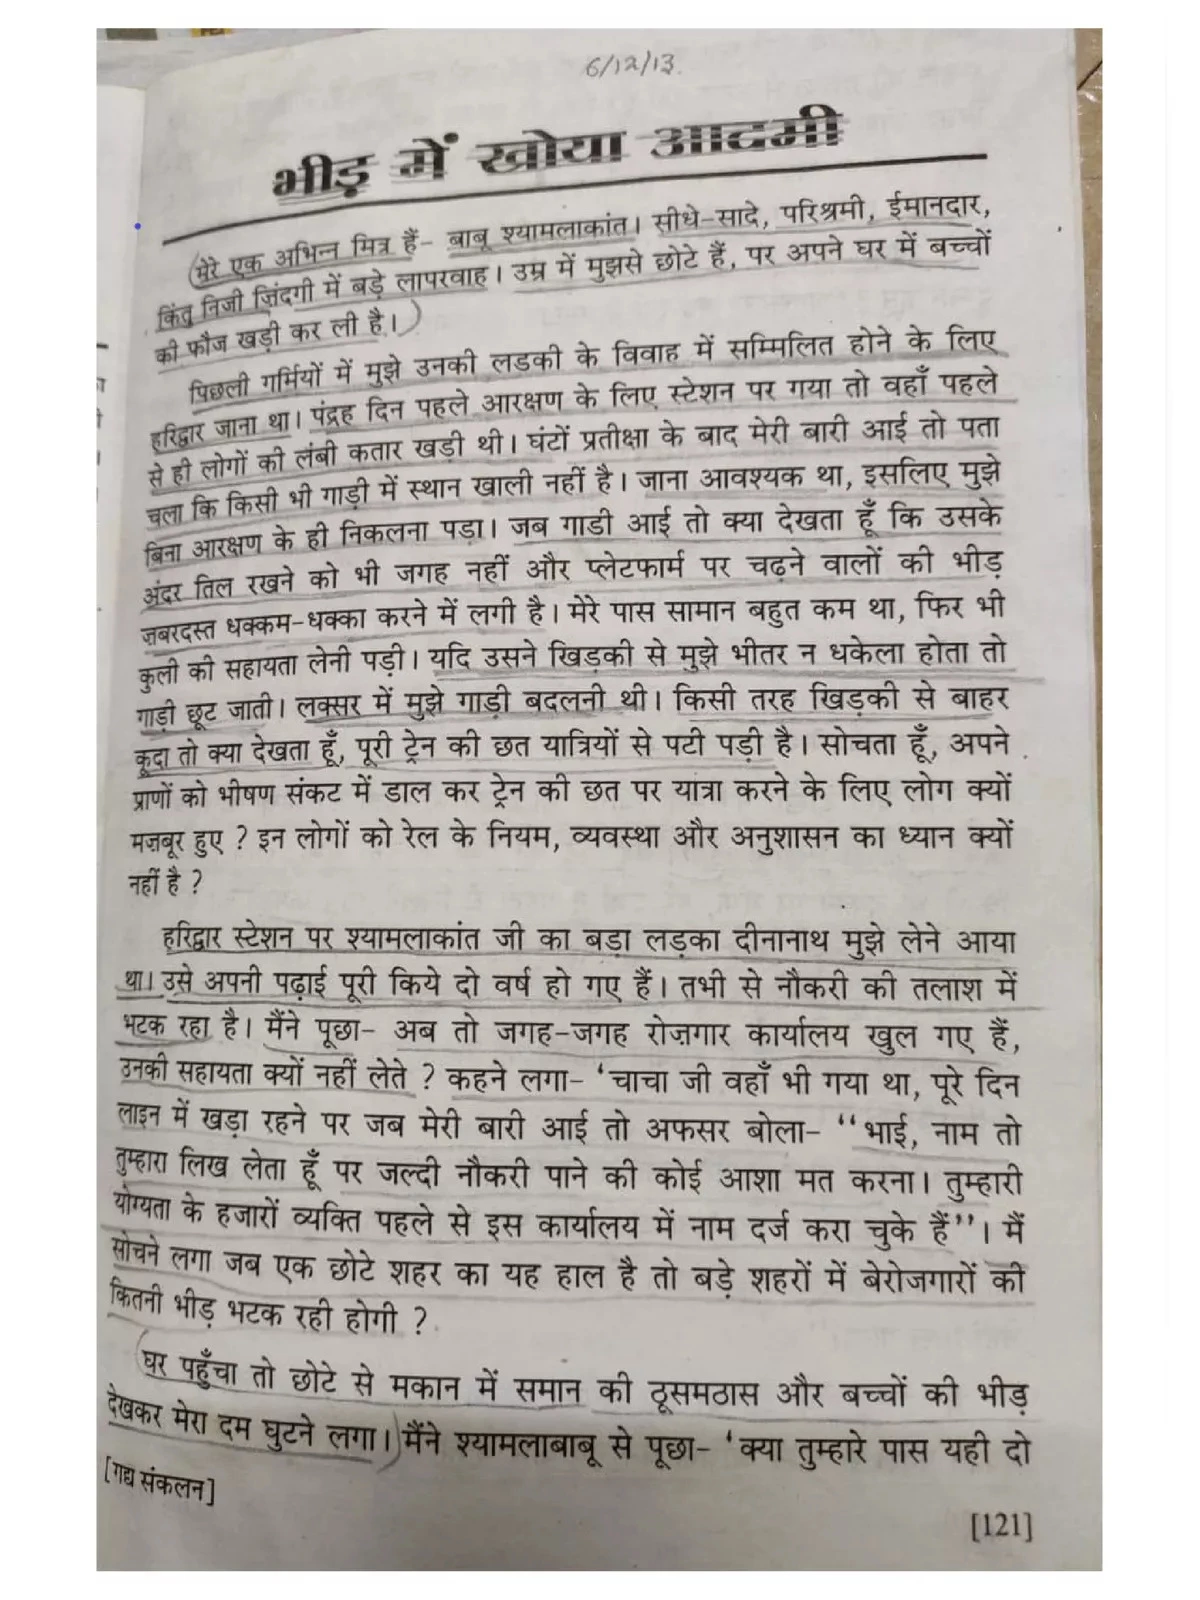 6/12/13
भीड़ में खोया आदमी
मेरे एक अभिन्न मित्र हैं- बाबू श्यामलाकांत। सीधे-सादे, परिश्रमी, ईमानदार,
किंतु निजी ज़िंदगी में बड़े लापरवाह। उम्र में मुझसे छोटे हैं, पर अपने घर में बच्चों
की फौज खड़ी कर ली है।
पिछली गर्मियों में मुझे उनकी लडकी के विवाह में सम्मिलित होने के लिए
हरिद्वार जाना था। पंद्रह दिन पहले आरक्षण के लिए स्टेशन पर गया तो वहाँ पहले
से ही लोगों की लंबी कतार खड़ी थी। घंटों प्रतीक्षा के बाद मेरी बारी आई तो पता
चला कि किसी भी गाड़ी में स्थान खाली नहीं है। जाना आवश्यक था, इसलिए मुझे
बिना आरक्षण के ही निकलना पड़ा। जब गाडी आई तो क्या देखता हूँ कि उसके
अंदर तिल रखने को भी जगह नहीं और प्लेटफार्म पर चढ़ने वालों की भीड़
ज़बरदस्त धक्कम-धक्का करने में लगी है। मेरे पास सामान बहुत कम था, फिर भी
कुली की सहायता लेनी पड़ी। यदि उसने खिड़की से मुझे भीतर न धकेला होता तो
गाड़ी छूट जाती। लक्सर में मुझे गाड़ी बदलनी थी। किसी तरह खिड़की से बाहर
कूदा तो क्या देखता हूँ, पूरी ट्रेन की छत यात्रियों से पटी पड़ी है। सोचता हूँ, अपने
प्राणों को भीषण संकट में डाल कर ट्रेन की छत पर यात्रा करने के लिए लोग क्यों
मज़बूर हुए ? इन लोगों को रेल के नियम, व्यवस्था और अनुशासन का ध्यान क्यों
नहीं है ?
हरिद्वार स्टेशन पर श्यामलाकांत जी का बड़ा लड़का दीनानाथ मुझे लेने आया
था। उसे अपनी पढ़ाई पूरी किये दो वर्ष हो गए हैं। तभी से नौकरी की तलाश में
भटक रहा है। मैंने पूछा- अब तो जगह-जगह रोज़गार कार्यालय खुल गए हैं,
उनकी सहायता क्यों नहीं लेते ? कहने लगा- ‘चाचा जी वहाँ भी गया था, पूरे दिन
लाइन में खड़ा रहने पर जब मेरी बारी आई तो अफसर बोला- “भाई, नाम तो
तुम्हारा लिख लेता हूँ पर जल्दी नौकरी पाने की कोई आशा मत करना। तुम्हारी
योग्यता के हजारों व्यक्ति पहले से इस कार्यालय में नाम दर्ज करा चुके हैं”। मैं
सोचने लगा जब एक छोटे शहर का यह हाल है तो बड़े शहरों में बेरोजगारों की
कितनी भीड़ भटक रही होगी ?
घर पहुँचा तो छोटे से मकान में समान की ठूसमठास और बच्चों की भीड़
देखकर मेरा दम घुटने लगा। मैंने श्यामलाबाबू से पूछा- ‘क्या तुम्हारे पास यही दो
[गद्य संकलन]
[121]